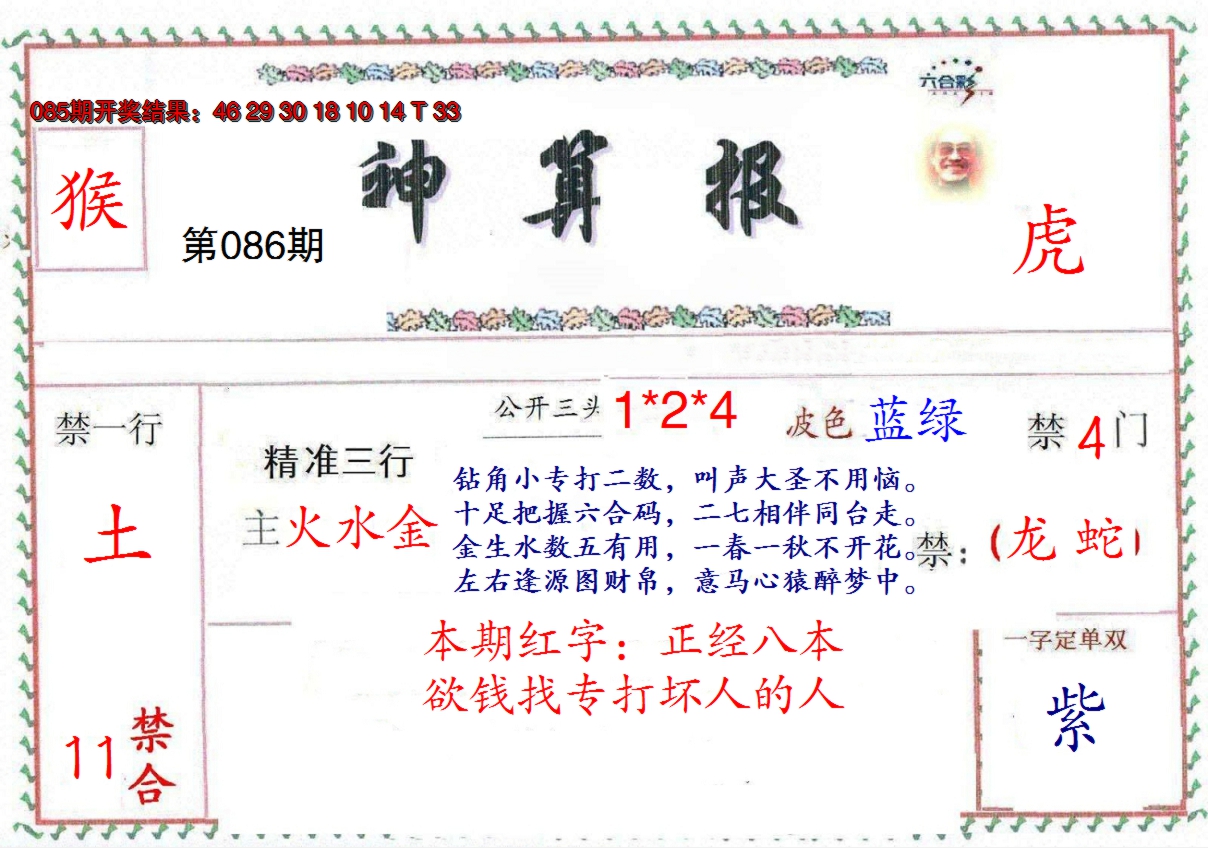 六合彩
085期开奖结果：46 29 30 18 10 14 T 33
神算报
猴
第086期
虎
禁一行
土
11
禁合
精准三行
主火水金
公开三头 1*2*4
波色 蓝绿
禁4门
钻角小专打二数，叫声大圣不用恼。
十足把握六合码，二七相伴同台走。
金生水数五有用，一春一秋不开花。
左右逢源图财帛，意马心猿醉梦中。
禁：（龙 蛇）
本期红字：正经八本
欲钱找专打坏人的人
一字定单双
紫